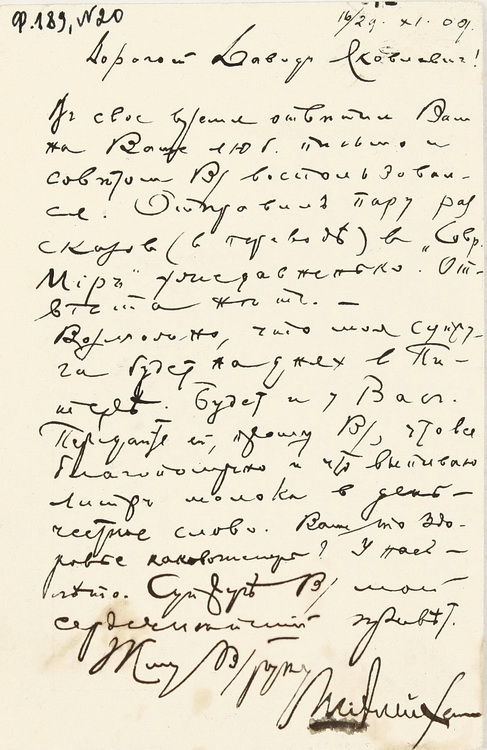 Ф. 189, №20
16/29. XI. 09.
Дорогой Давидъ Яковлевич!
Въ свое время ответилъ Вам
на Ваше люб. письмо и
советом В/ воспользовал-
ся. Отправилъ пару раз
сказов (в переводѣ) в „Совр.
Міръ" уже давненько. От-
вѣта нѣт. —
Возможно, что моя супру-
га будет на днях в Пи-
терѣ. Будет и у Вас.
Передайте ей, прошу В/, что все
благополучно и что выпиваю
литръ молока в день —
честное слово. Ваше то здо-
ровье каково? У нас —
лѣто. Супругѣ В/ мой
сердечнѣйшій привѣт.
Жму В/ руку